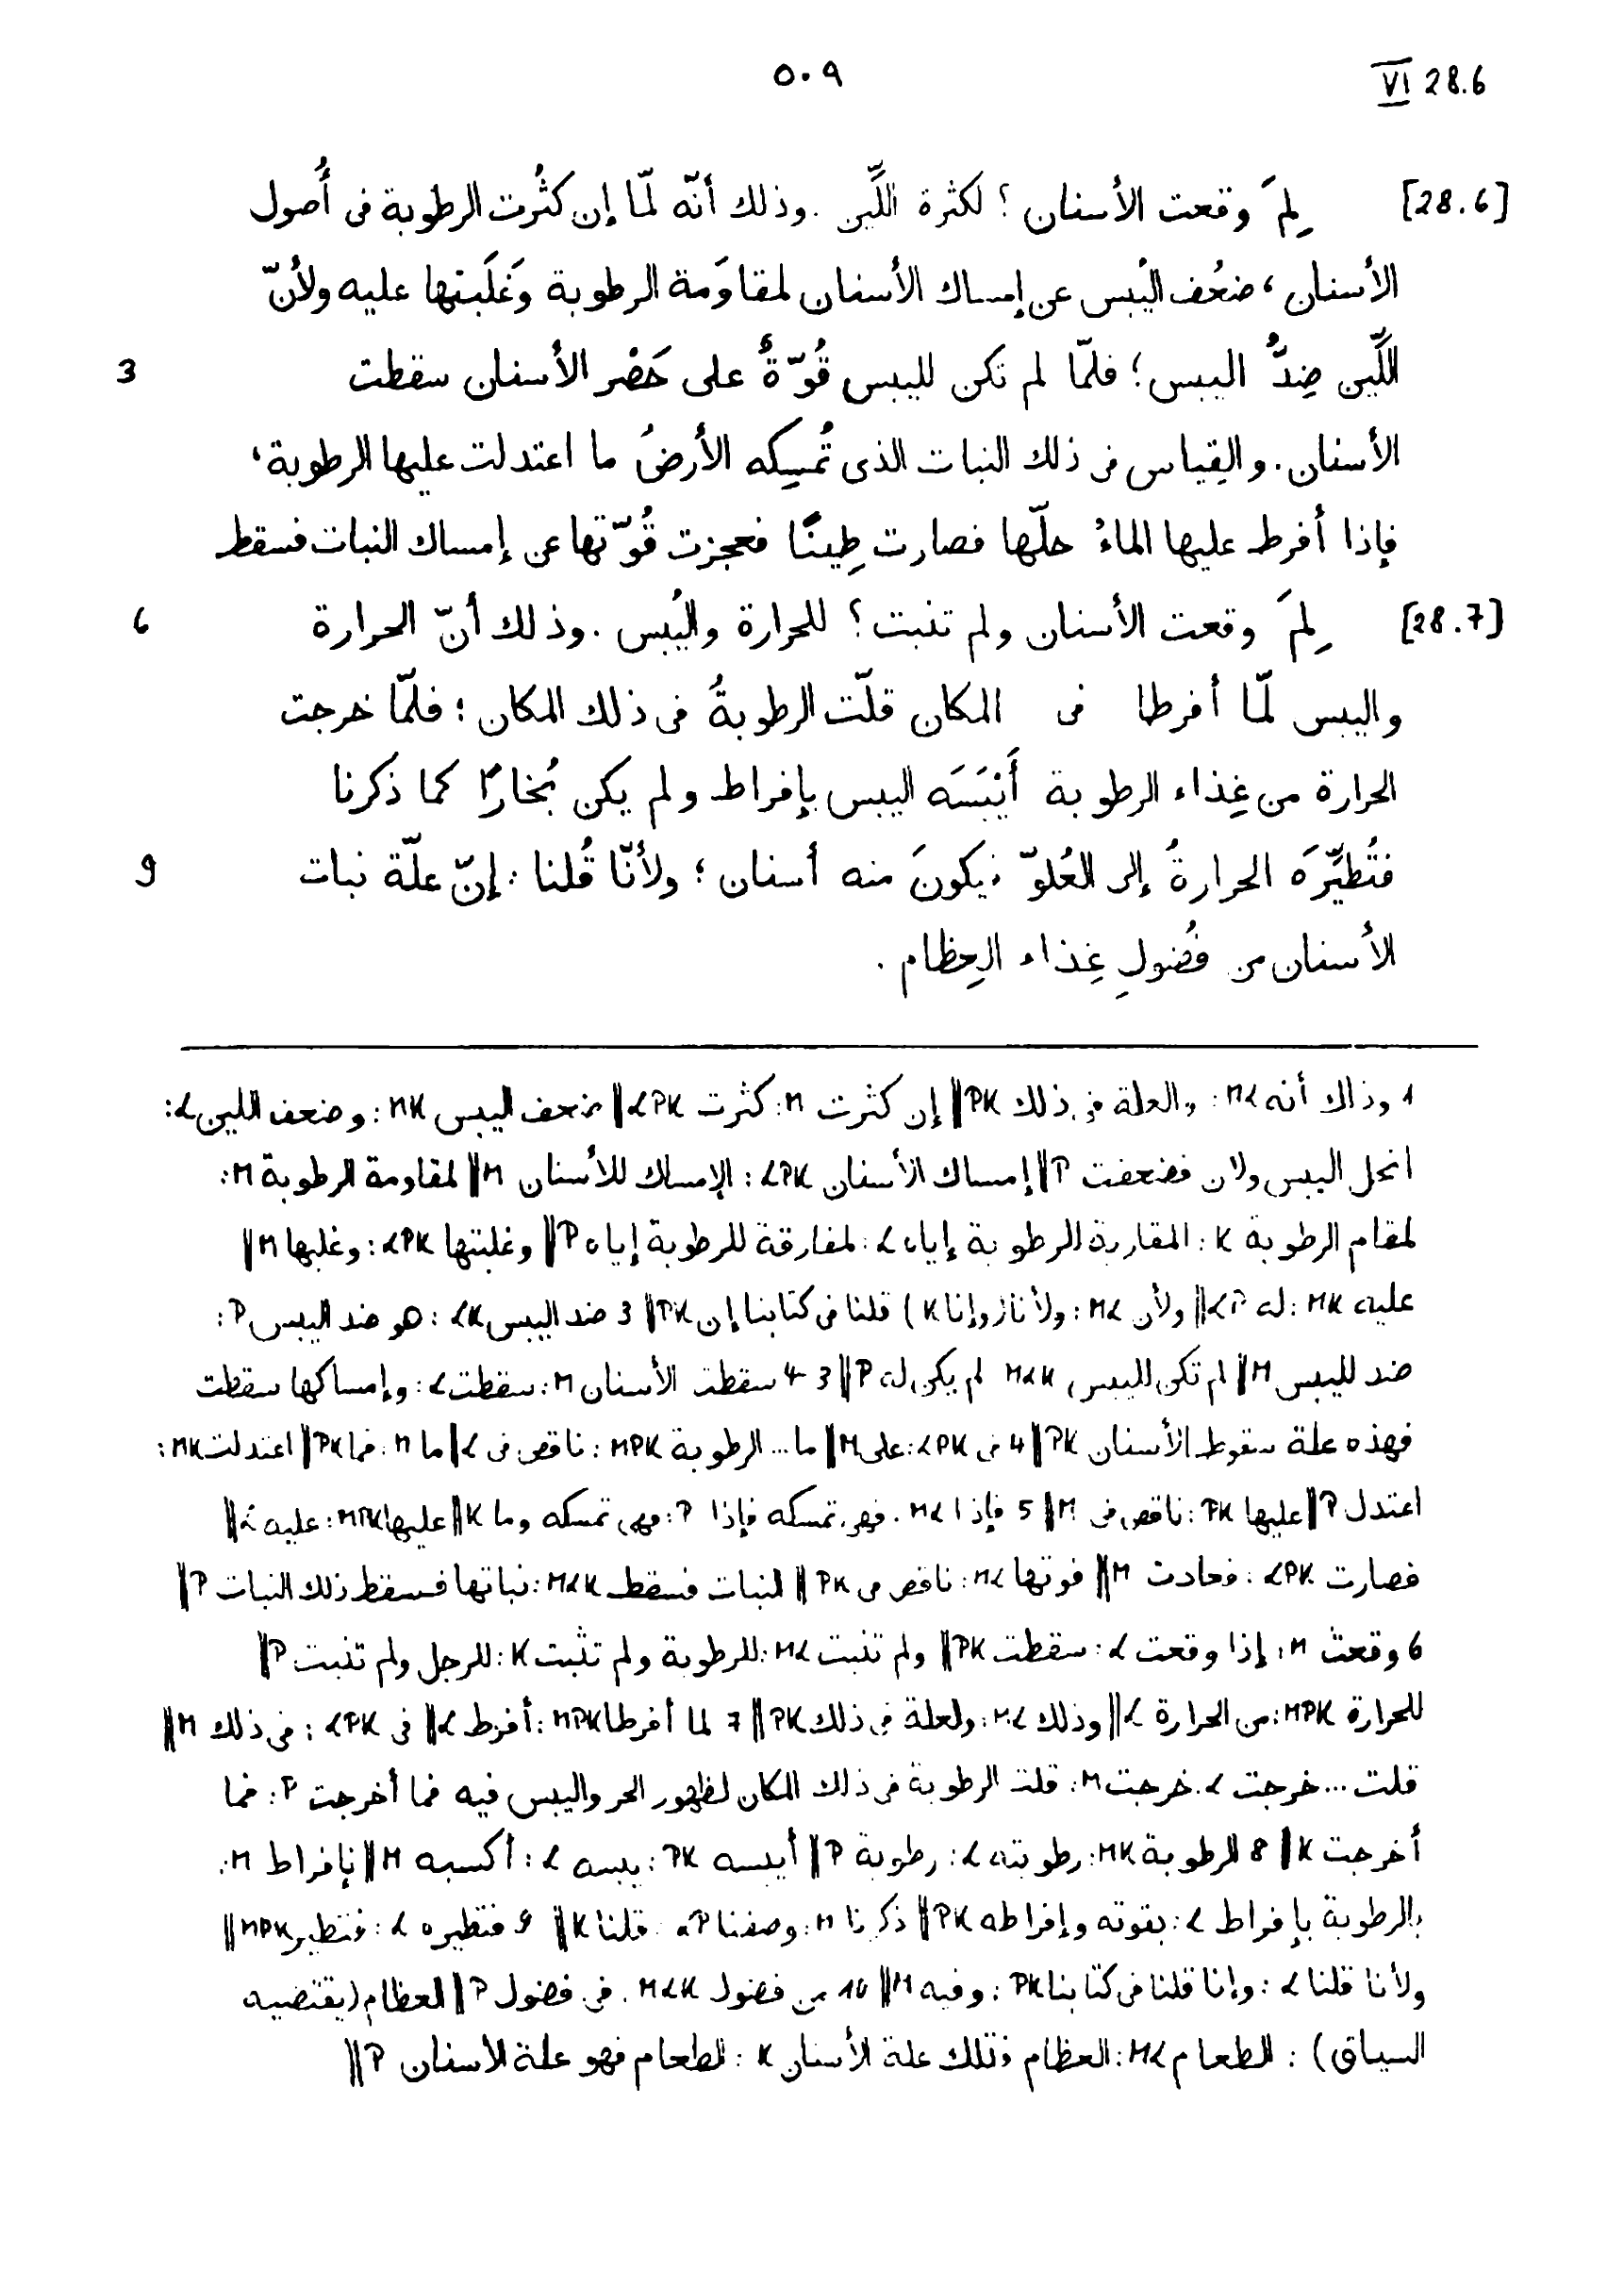 ٥٠٩ VI 28.6
[28.6] لِمَ وقعت الأسنان ؟ لكثرة اللِّين . وذلك أنّه لمّا إن كثُرت الرطوبة فى أُصول
الأسنان ، ضعُف اليُبس عن إمساك الأسنان لمقاوَمة الرطوبة وَغَلَبتها عليه ولأنّ
3 اللِّين ضِدُّ اليبس ؛ فلمّا لم تكن لليبس قُوّةٌ على حَصْر الأسنان سقطت
الأسنان . والقِياس فى ذلك النبات الذى تُمسِكه الأرضُ ما اعتدلت عليها الرطوبة ،
فإذا أفرط عليها الماءُ حلّها فصارت طِينًا فعجزت قُوّتها عن إمساك النبات فسقط
6 [28.7] لِمَ وقعت الأسنان ولم تنبت ؟ للحرارة واليُبس . وذلك أنّ الحرارة
واليبس لمّا أفرطا فى المكان قلّت الرطوبةُ فى ذلك المكان ؛ فلمّا خرجت
الحرارة من غِذاء الرطوبة أَيْبَسَه اليبس بإفراط ولم يكن بُخارًا كما ذكرنا
9 فتُطيِّرَه الحرارةُ إلى العُلوّ فيكونَ منه أسنان ؛ ولأنّا قُلنا : إنّ علّة نبات
الأسنان من فُضولِ غِذاء العِظام .
1 وذلك أنه ML : والعلة فى ذلك PK || إن كثرت M : كثرت LPK || ضعف اليبس MK : وضعف اللين L :
انحل اليبس ولان فضعفت P || إمساك الأسنان LPK : الإمساك للأسنان M || لمقاومة الرطوبة M :
لمقام الرطوبة K : المقاربة للرطوبة إياه L : لمفارقة للرطوبة إياه P || وغلبتها LPK : وغلبها M ||
عليه MK : له LP || ولأن ML : ولأنا (وإنا K) قلنا فى كتابنا إن PK || 3 ضد اليبس LK : هو ضد اليبس P :
ضد لليبس M || لم تكن لليبس MLK لم يكن له P || 3-4 سقطت الأسنان M : سقطت L : وإمساكها سقطت
فهذه علة سقوط الأسنان PK || 4 فى LPK : على M || ما ... الرطوبة MPK : ناقص فى L || ما M : فما PK || اعتدلت MK :
اعتدل P || عليها PK : ناقص فى M || 5 فإذا ML . فهى تمسكه فإذا P : فهى تمسكه وما K || عليها MPK : عليه L ||
فصارت LPK : فعادت M || قوتها ML : ناقص فى PK || النبات فسقط MLK : نباتها فسقط ذلك النبات P ||
6 وقعت M : إذا وقعت L : سقطت PK || ولم تنبت ML : للرطوبة ولم تثبت K : للرجل ولم تنبت P ||
للحرارة MPK : من الحرارة L || وذلك ML : والعلة فى ذلك PK || 7 لما أفرطا MPK : أفرط L || فى LPK : فى ذلك M ||
قلت ... خرجت L . خرجت M : قلت الرطوبة فى ذلك المكان لظهور الحر واليبس فيه فما أخرجت P : فما
أخرجت K || 8 الرطوبة MK : رطوبته L : رطوبة P || أيبسه PK : يبسه L : أكسبه M || بإفراط M :
بالرطوبة بإفراط L : بقوته وإفراطه PK || ذكرنا M : وصفنا LP : قلنا K || 9 فتطيره L : فتطير MPK ||
ولأنا قلنا L : وإنا قلنا فى كتابنا PK : وفيه M || 10 من فضول MLK . فى فضول P || العظام (يقتضيه
السياق) : الطعام ML : العظام فتلك علة الأسنان K : الطعام فهو علة الأسنان P ||